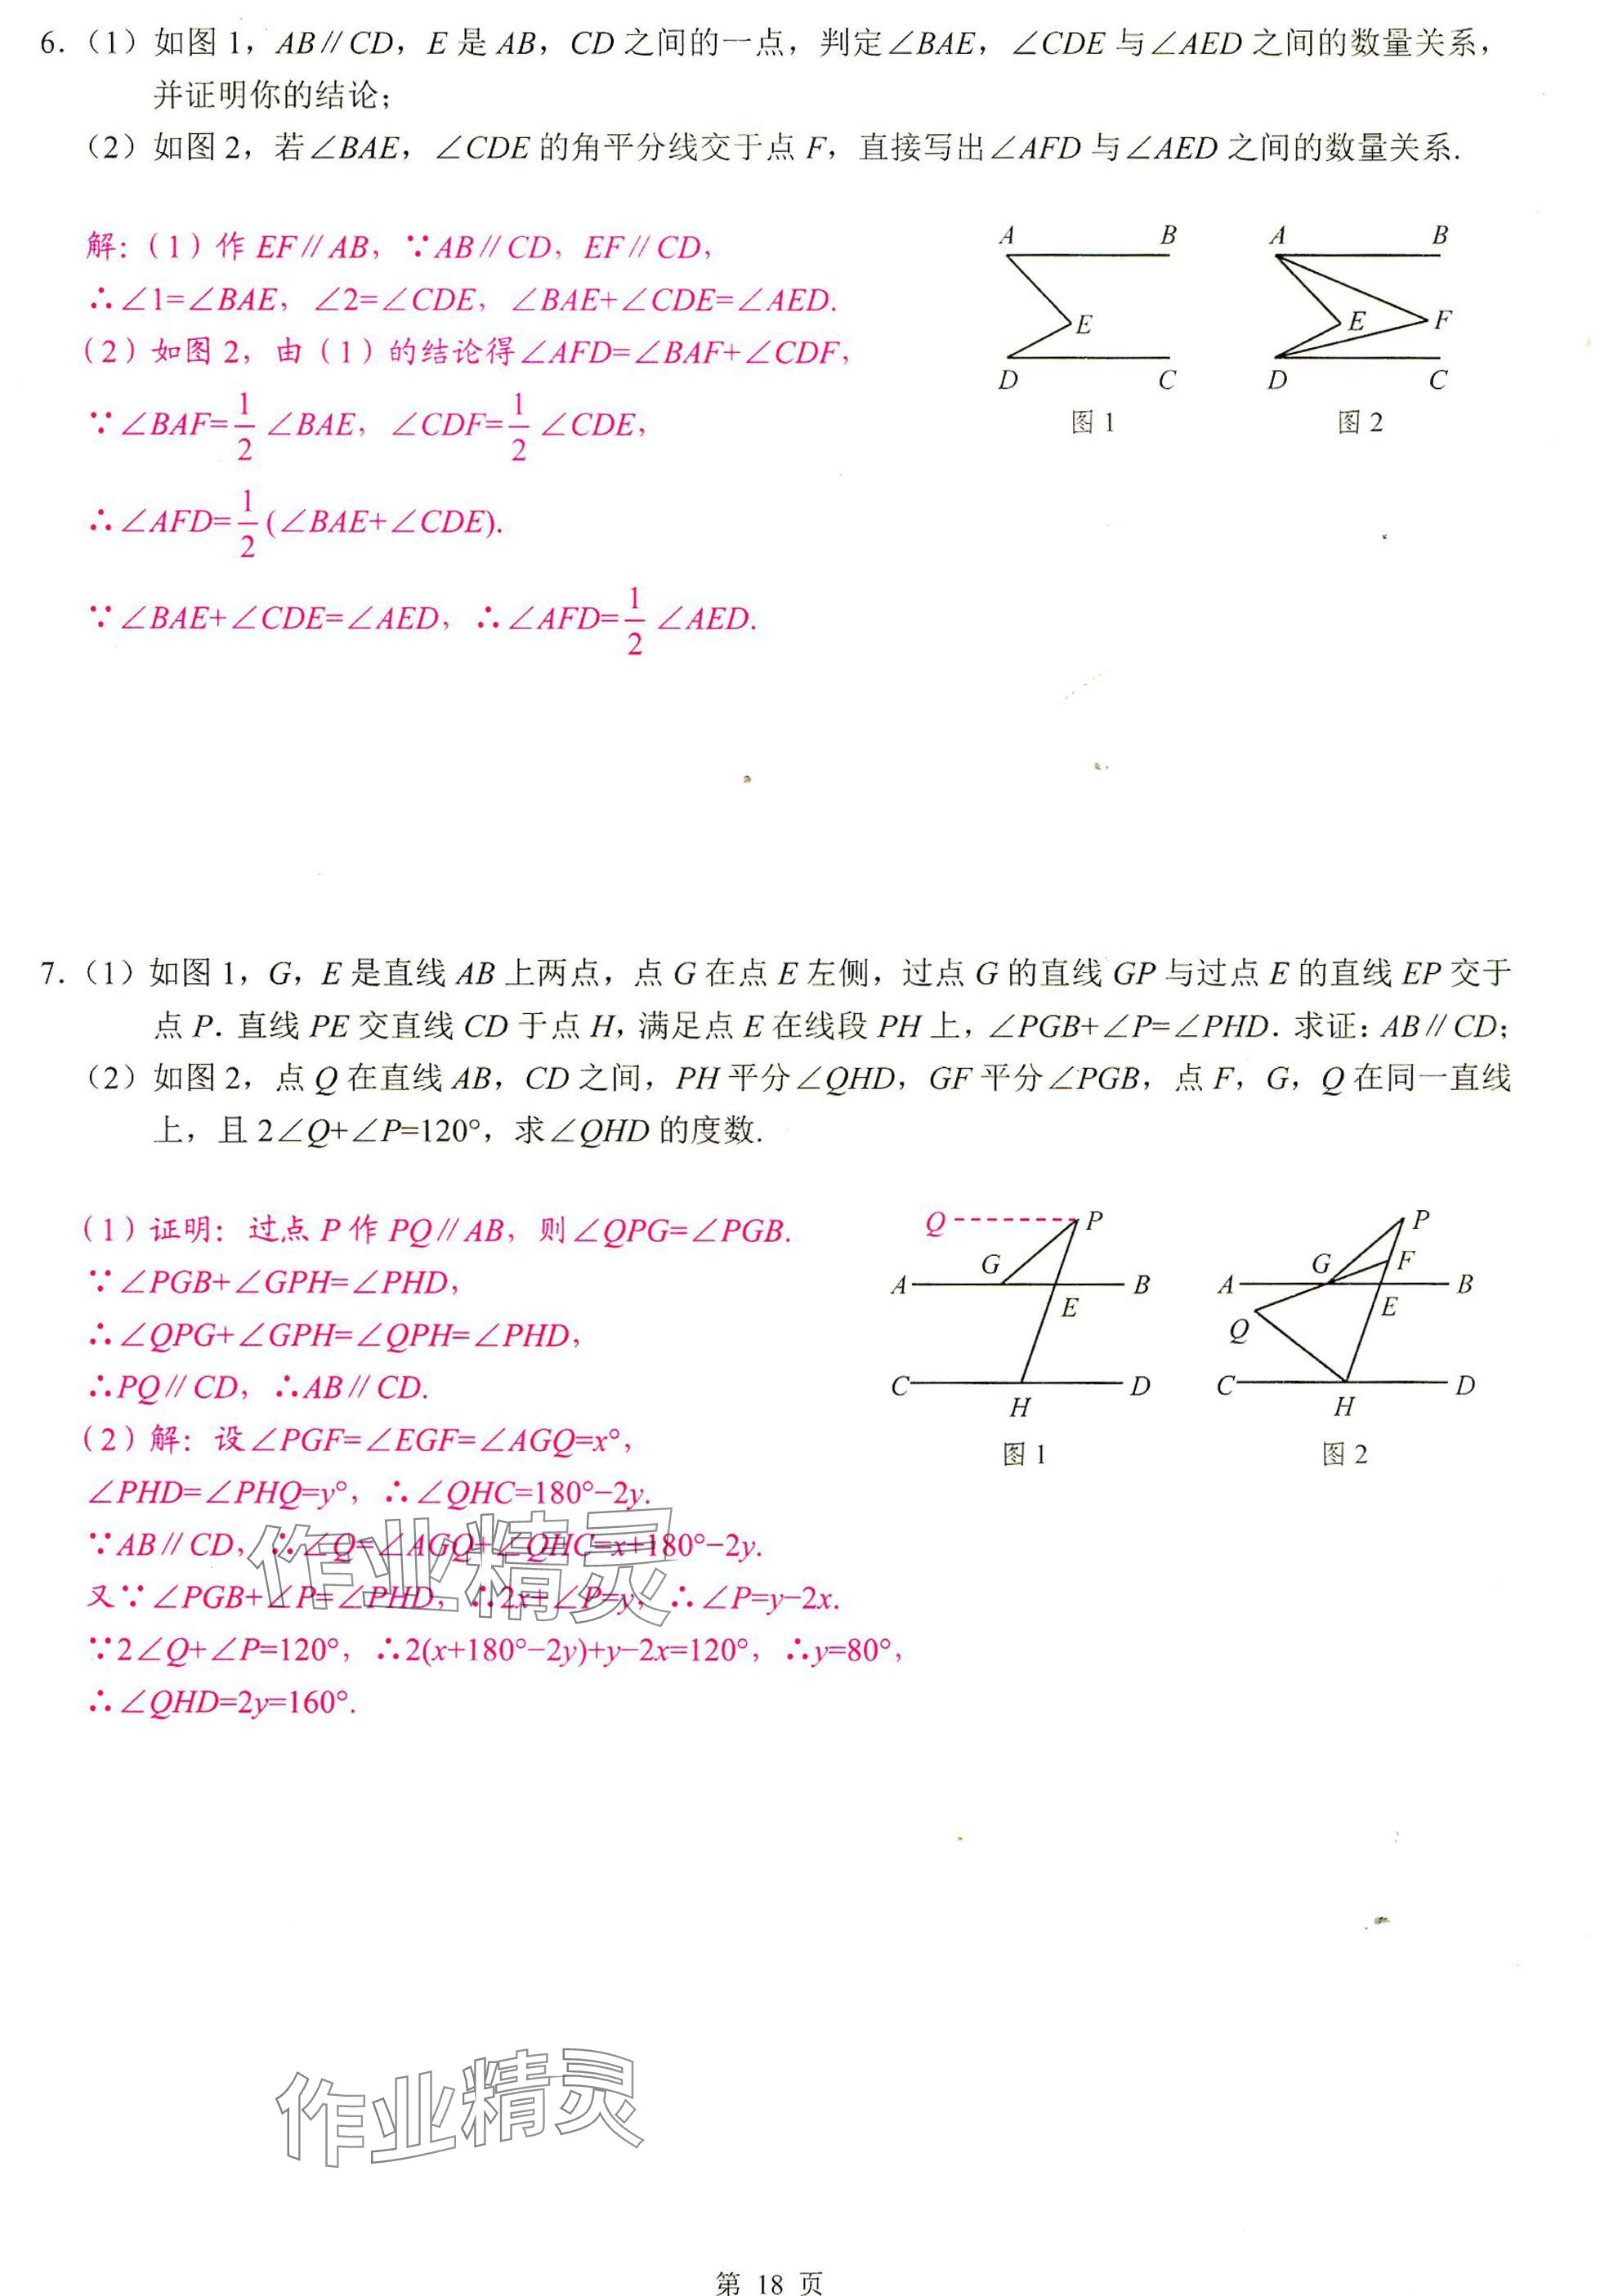 6.（1）如图1，AB∥CD，E是AB，CD之间的一点，判定∠BAE，∠CDE与∠AED之间的数量关系，
并证明你的结论；
（2）如图2，若∠BAE，∠CDE的角平分线交于点F，直接写出∠AFD与∠AED之间的数量关系.
解：（1）作EF∥AB，∵AB∥CD，EF∥CD，
∴∠1=∠BAE，∠2=∠CDE，∠BAE+∠CDE=∠AED.
（2）如图2，由（1）的结论得∠AFD=∠BAF+∠CDF，
∵∠BAF=1/2∠BAE，∠CDF=1/2∠CDE，
∴∠AFD=1/2(∠BAE+∠CDE).
∵∠BAE+∠CDE=∠AED，∴∠AFD=1/2∠AED.
A B
E
D C
图1
A B
E F
D C
图2
7.（1）如图1，G，E是直线AB上两点，点G在点E左侧，过点G的直线GP与过点E的直线EP交于
点P. 直线PE交直线CD于点H，满足点E在线段PH上，∠PGB+∠P=∠PHD. 求证：AB∥CD；
（2）如图2，点Q在直线AB，CD之间，PH平分∠QHD，GF平分∠PGB，点F，G，Q在同一直线
上，且2∠Q+∠P=120°，求∠QHD的度数.
（1）证明：过点P作PQ∥AB，则∠QPG=∠PGB.
∵∠PGB+∠GPH=∠PHD，
∴∠QPG+∠GPH=∠QPH=∠PHD，
∴PQ∥CD，∴AB∥CD.
（2）解：设∠PGF=∠EGF=∠AGQ=x°，
∠PHD=∠PHQ=y°，∴∠QHC=180°−2y.
∵AB∥CD，∴∠Q=∠AGQ+∠QHC=x+180°−2y.
又∵∠PGB+∠P=∠PHD，∴2x+∠P=y，∴∠P=y−2x.
∵2∠Q+∠P=120°，∴2(x+180°−2y)+y−2x=120°，∴y=80°，
∴∠QHD=2y=160°.
Q P
G
A B
E
C D
H
图1
P
G F
A B
E
Q
C D
H
图2
作业精灵
作业精灵
第 18 页